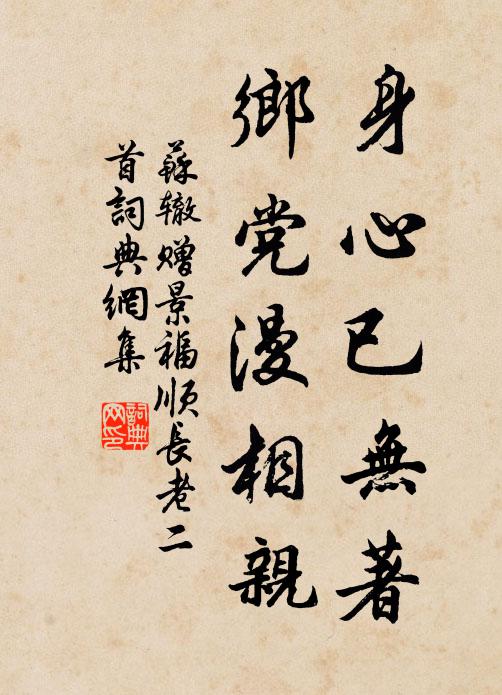 身心已無著
鄉党漫相親
蘇辙赠景福順長老二
首詞典網集
詞典
网印